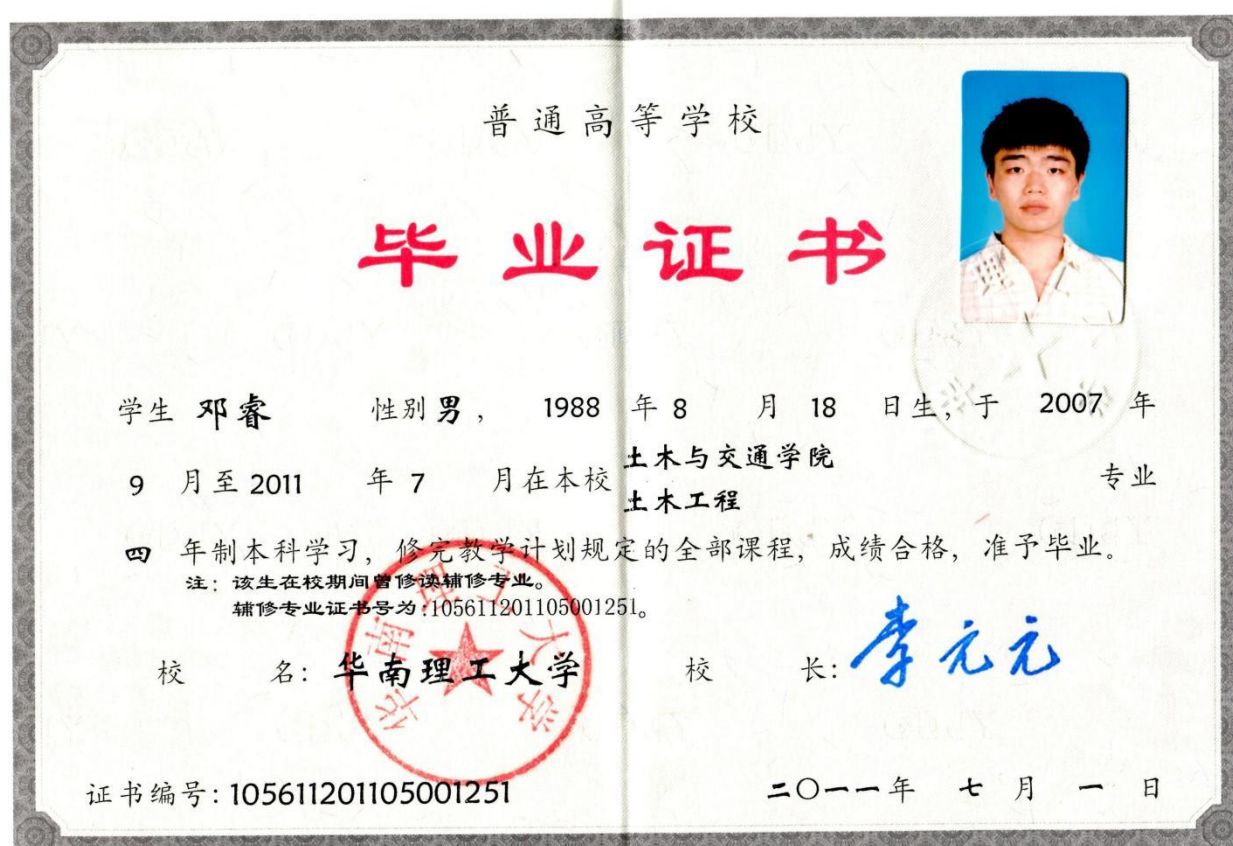 普通高等学校
毕业证书
学生 邓睿 性别 男， 1988 年 8 月 18 日生，于 2007 年
土木与交通学院
9 月至 2011 年 7 月在本校 专业
土木工程
四 年制本科学习，修完教学计划规定的全部课程，成绩合格，准予毕业。
注：该生在校期间曾修读辅修专业。
辅修专业证书号为:105611201105001251。
校 名：华南理工大学 校 长：李元元
华南理工大学
证书编号：105611201105001251 二〇一一年 七 月 一 日